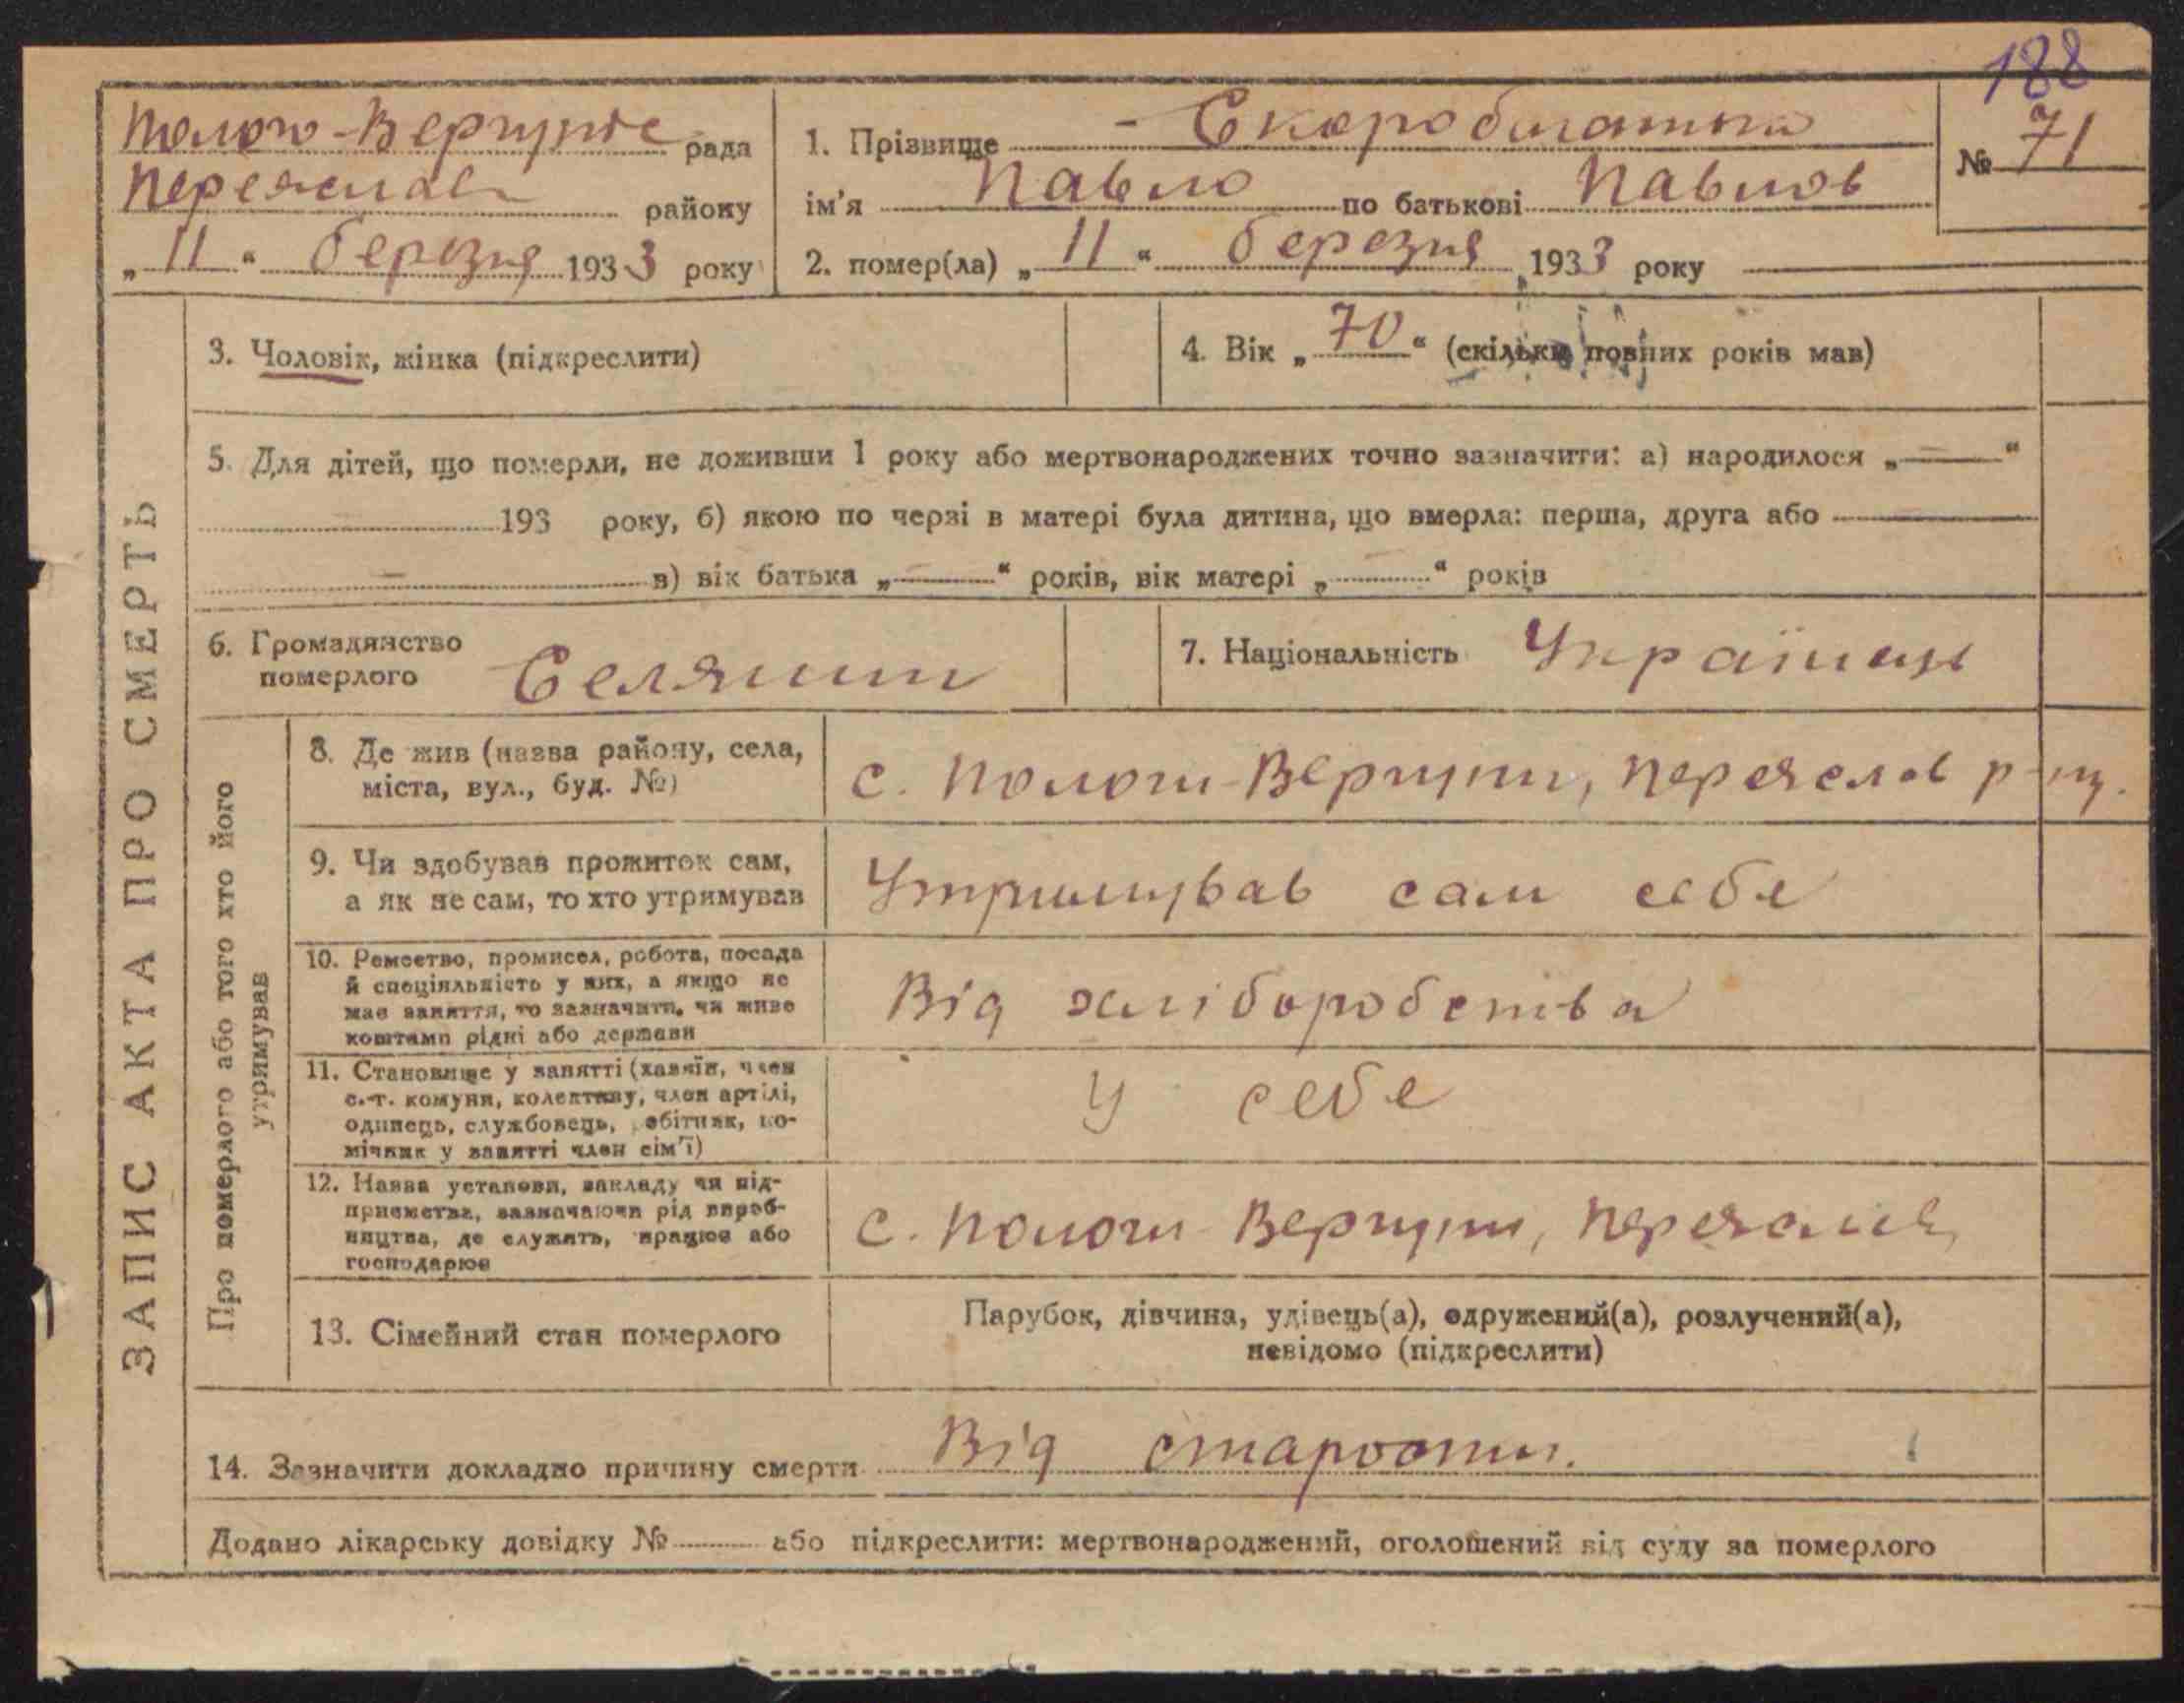 188
Полого-Вергунів рада
Переяслав району
„11“ березня 1933 року
1. Прізвище - Скоробагатько
ім'я Павло по батькові Павлов
№ 71
2. помер(ла) „11“ березня 1933 року
ЗАПИС АКТА ПРО СМЕРТЬ
3. Чоловік, жінка (підкреслити)
4. Вік „70“ (скільки повних років мав)
5. Для дітей, що померли, не доживши 1 року або мертвонароджених точно зазначити: а) народилося „—“
193 року, б) якою по черзі в матері була дитина, що вмерла: перша, друга або
в) вік батька „—“ років, вік матері „—“ років
6. Громадянство
померлого Селянин
7. Національність Українець
Про померлого або того хто його
утримував
8. Де жив (назва району, села,
міста, вул., буд. №)
с. Пологи-Вергуни, Переяслав р-ну.
9. Чи здобував прожиток сам,
а як не сам, то хто утримував
Утримував сам себе
10. Ремество, промисел, робота, посада
й спеціяльність у них, а якщо не
має заняття, то зазначити, чи живе
коштами рідні або держави
Від хліборобства
11. Становище у занятті (хазяїн, член
с.-г. комуни, колективу, член артілі,
одинець, службовець, робітник, по-
мічник у занятті член сім'ї)
У себе
12. Назва установи, закладу чи під-
приємства, зазначаючи рід вироб-
ництва, де служить, працює або
господарює
с. Пологи Вергуни, Переяслав
13. Сімейний стан померлого
Парубок, дівчина, удівець(а), одружений(а), розлучений(а),
невідомо (підкреслити)
14. Зазначити докладно причину смерти Від старости.
Додано лікарську довідку № або підкреслити: мертвонароджений, оголошений від суду за померлого